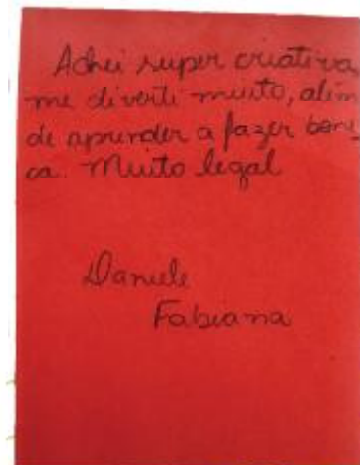 Achei super criativa,
me diverti muito, alem
de aprender a fazer bone
ca. Muito legal
Daniele
Fabiana